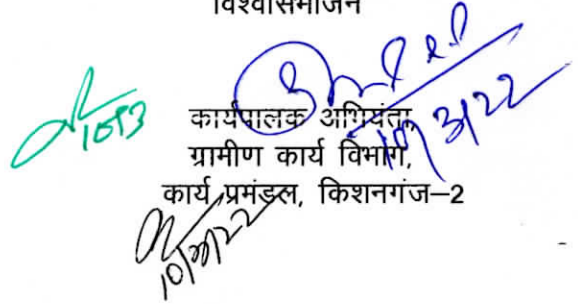 विश्वासभाजन
10/3/22
10/3
कार्यपालक अभियंता,
ग्रामीण कार्य विभाग,
कार्य प्रमंडल, किशनगंज–2
10/3/22